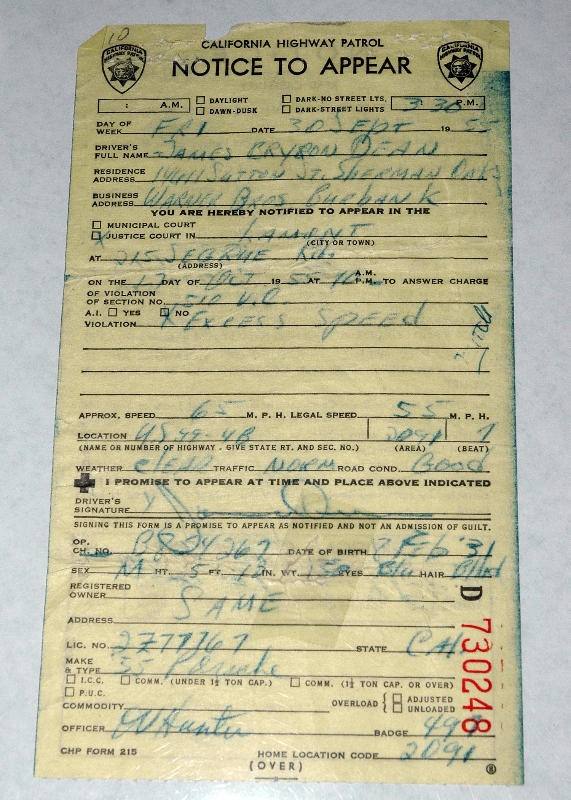 10
CALIFORNIA HIGHWAY PATROL
NOTICE TO APPEAR
: A.M. ☐ DAYLIGHT ☐ DARK-NO STREET LTS. 3:30 P.M.
☐ DAWN-DUSK ☐ DARK-STREET LIGHTS
DAY OF WEEK FRI DATE 30 SEPT 1955
DRIVER'S FULL NAME JAMES BYRON DEAN
RESIDENCE ADDRESS 14411 SUTTON ST. SHERMAN OAKS
BUSINESS ADDRESS WARNER BROS BURBANK
YOU ARE HEREBY NOTIFIED TO APPEAR IN THE
☐ MUNICIPAL COURT
☒ JUSTICE COURT IN LAMONT
(CITY OR TOWN)
AT 215 SEGRUE RD.
(ADDRESS)
ON THE 17 DAY OF OCT 1955 AT 10 A.M. P.M. TO ANSWER CHARGE
OF VIOLATION OF SECTION NO. 510 V.C
A.I. ☐ YES ☒ NO
VIOLATION EXCESS SPEED
APPROX. SPEED 65 M. P. H. LEGAL SPEED 55 M. P. H.
LOCATION US 99-4B 2091 7
(NAME OR NUMBER OF HIGHWAY - GIVE STATE RT. AND SEC. NO.) (AREA) (BEAT)
WEATHER CLEAR TRAFFIC NORM ROAD COND. GOOD
I PROMISE TO APPEAR AT TIME AND PLACE ABOVE INDICATED
DRIVER'S SIGNATURE X
SIGNING THIS FORM IS A PROMISE TO APPEAR AS NOTIFIED AND NOT AN ADMISSION OF GUILT.
OP. CH. NO. DATE OF BIRTH 8 Feb '31
SEX M HT. 5 FT. IN. WT. EYES Blu HAIR
REGISTERED OWNER SAME
ADDRESS
LIC. NO. 2Z77767 STATE CAL
MAKE & TYPE '55 Porsche
☐ I.C.C. ☐ COMM. (UNDER 1½ TON CAP.) ☐ COMM. (1½ TON CAP. OR OVER)
☐ P.U.C.
COMMODITY OVERLOAD { ☐ ADJUSTED ☐ UNLOADED
OFFICER OV Hunter BADGE
CHP FORM 215 HOME LOCATION CODE 2091
(OVER)
D 730248